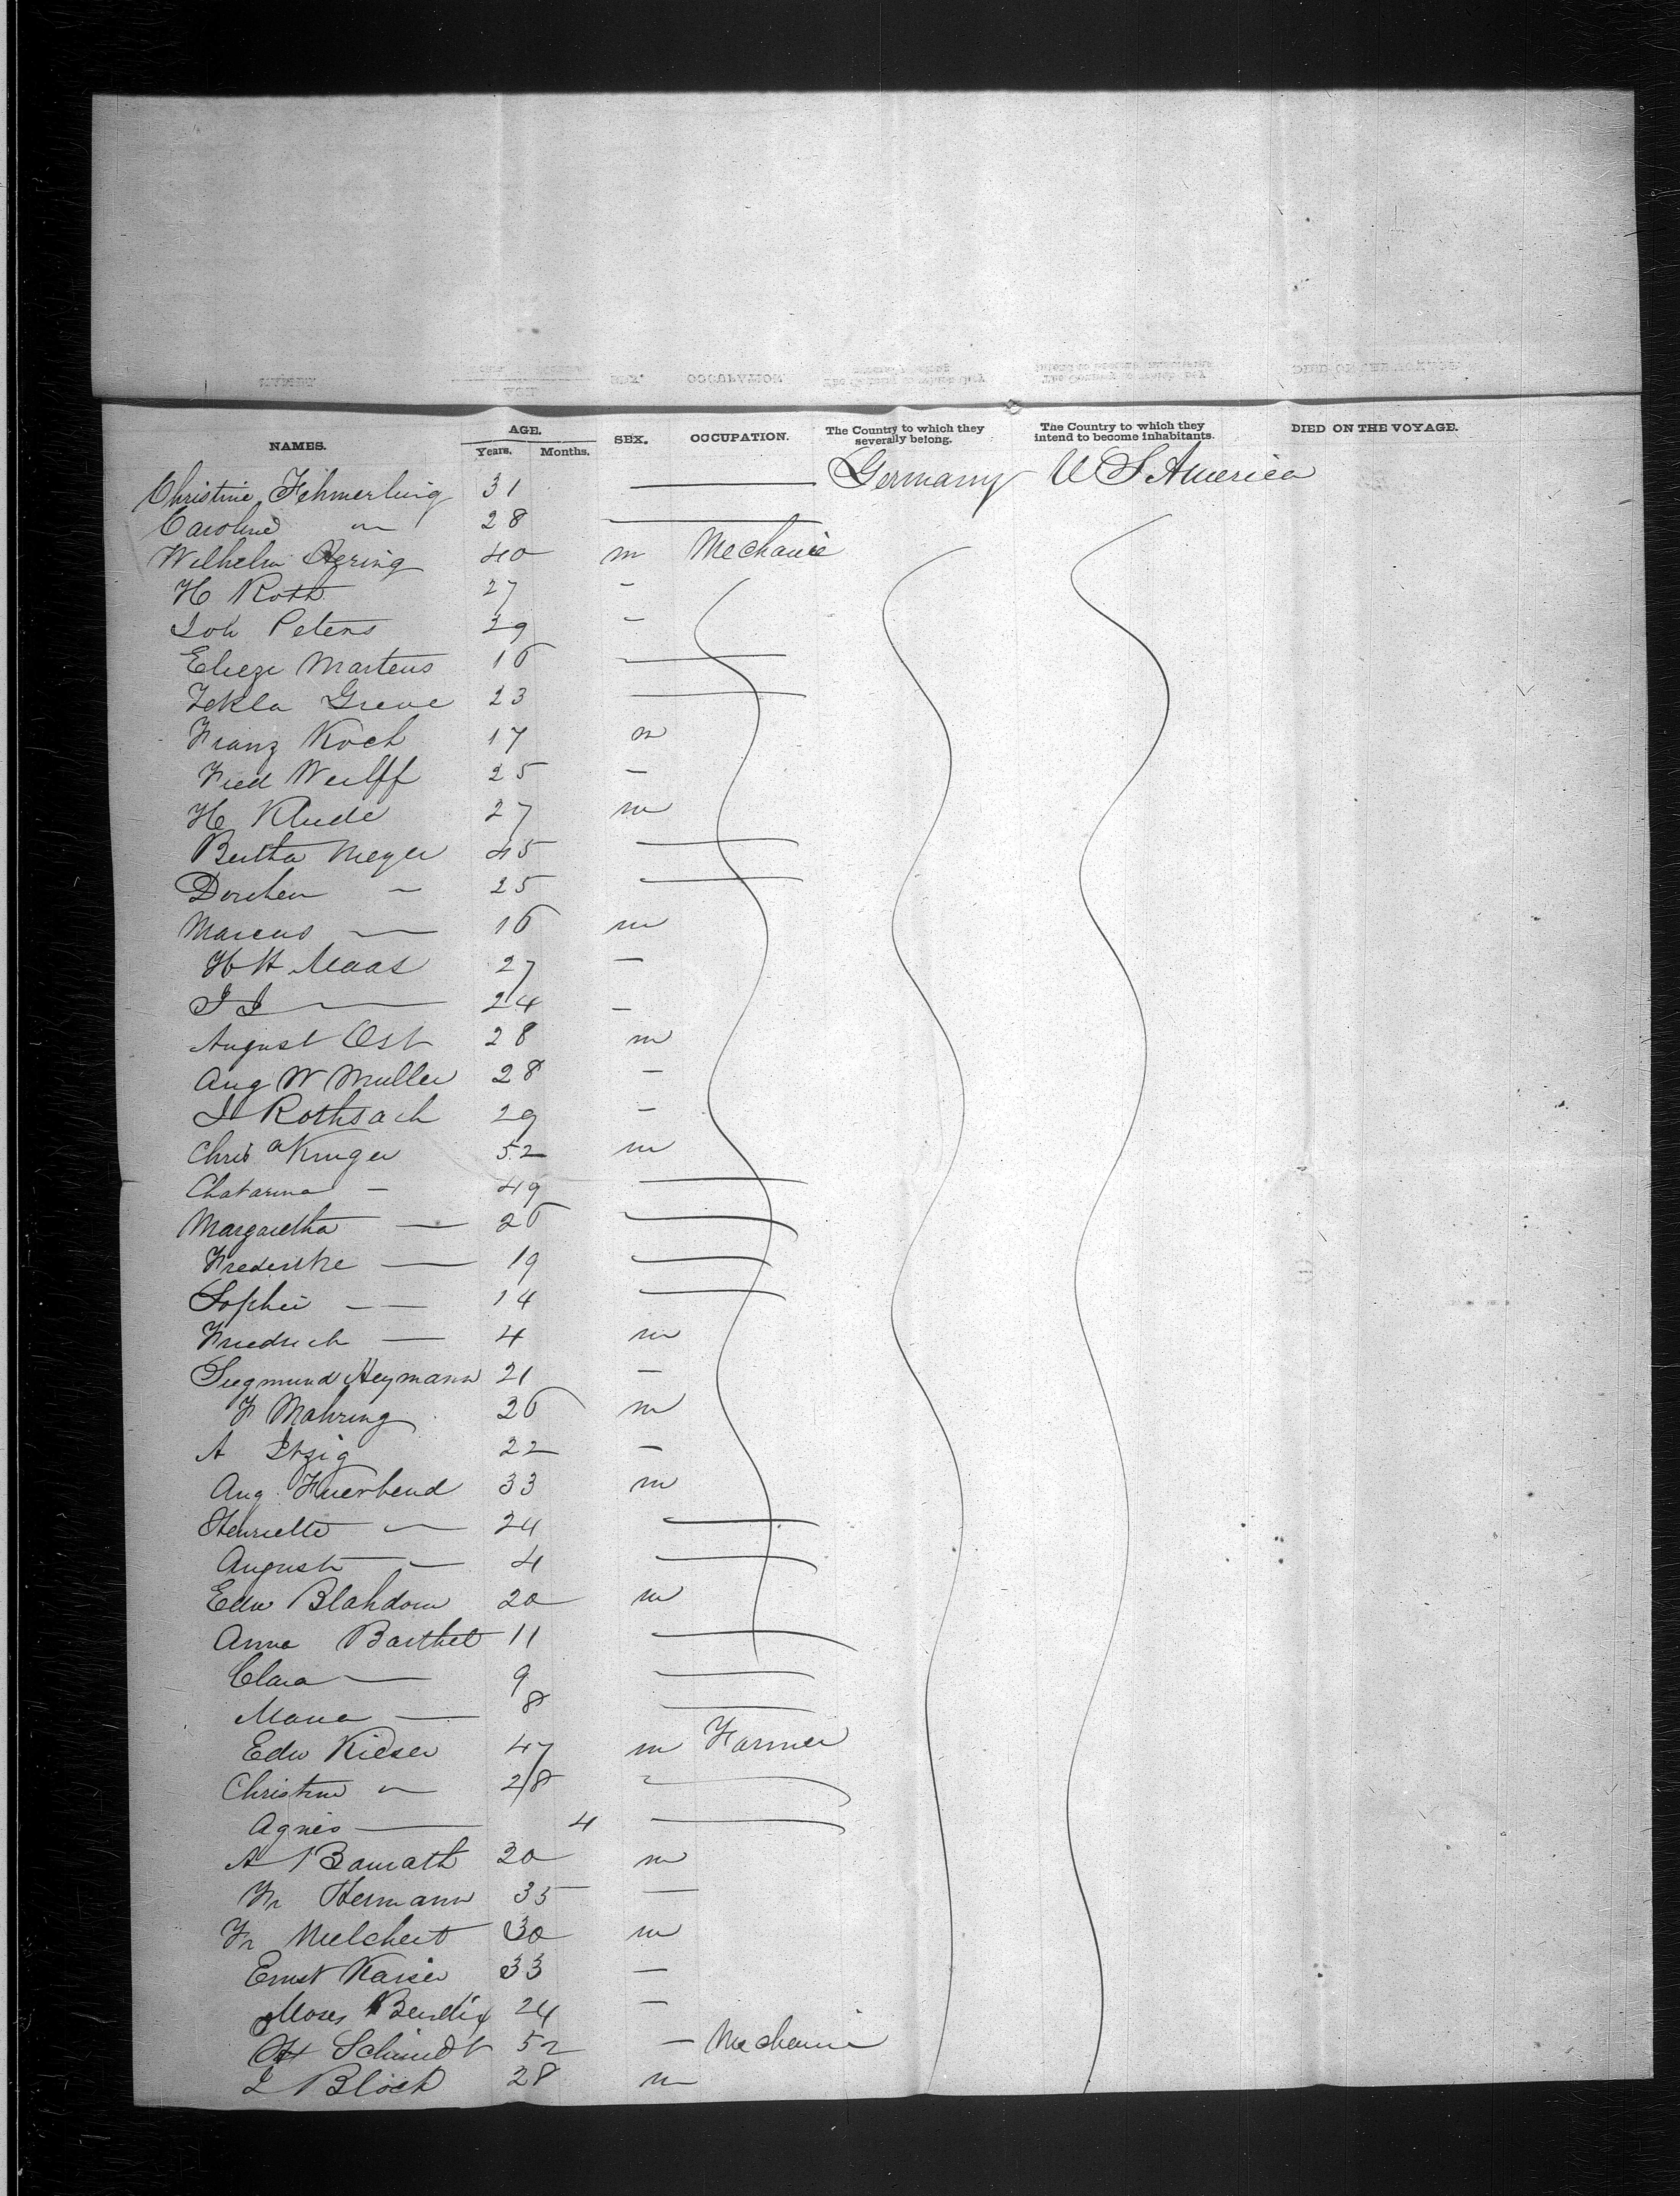 NAMES. AGE. Years. Months. SEX. OCCUPATION. The Country to which they severally belong. The Country to which they intend to become inhabitants. DIED ON THE VOYAGE.
Christine Fehmerling 31 — Germany U S America
Caroline " 28 —
Wilhelm Hering 40 m Mechanic
H Roth 27 -
Joh Peters 29 -
Martens 16 —
Tekla Greve 23 —
Franz Koch 17 m
Fried Wulff 25 -
H Klude 27 m
Bertha Meyer 45 —
Dorchen - 25 —
Marcus — 16 m
H H Maas 27 -
J J — 24 -
August Ost 28 m
Aug W Muller 28 -
J Rothsach 29 -
Chris a Kruger 52 m
Chatarina - 49 —
Margaretha — 26 —
Frederike — 19 —
Sophie — 14 —
Friedrich — 4 m
Siegmund Heymann 21 -
F Mahring 26 m
A Itzig 22 -
Aug 33 m
Henriette — 24 —
August — 4 —
Edw Blahdom 20 m
Anna Barthel 11 —
Clara — 9 —
Maria — 8 —
Edw Kieser 47 m Farmer
Christine " 28 —
Agnes — 4 —
A Bamrath 20 m
Fr Hermann 35 —
Fr Melchert 30 m
Ernst Kaiser 33 —
Moses Bendix 24 —
Schmidt 52 — Mechanic
J Bloch 28 m